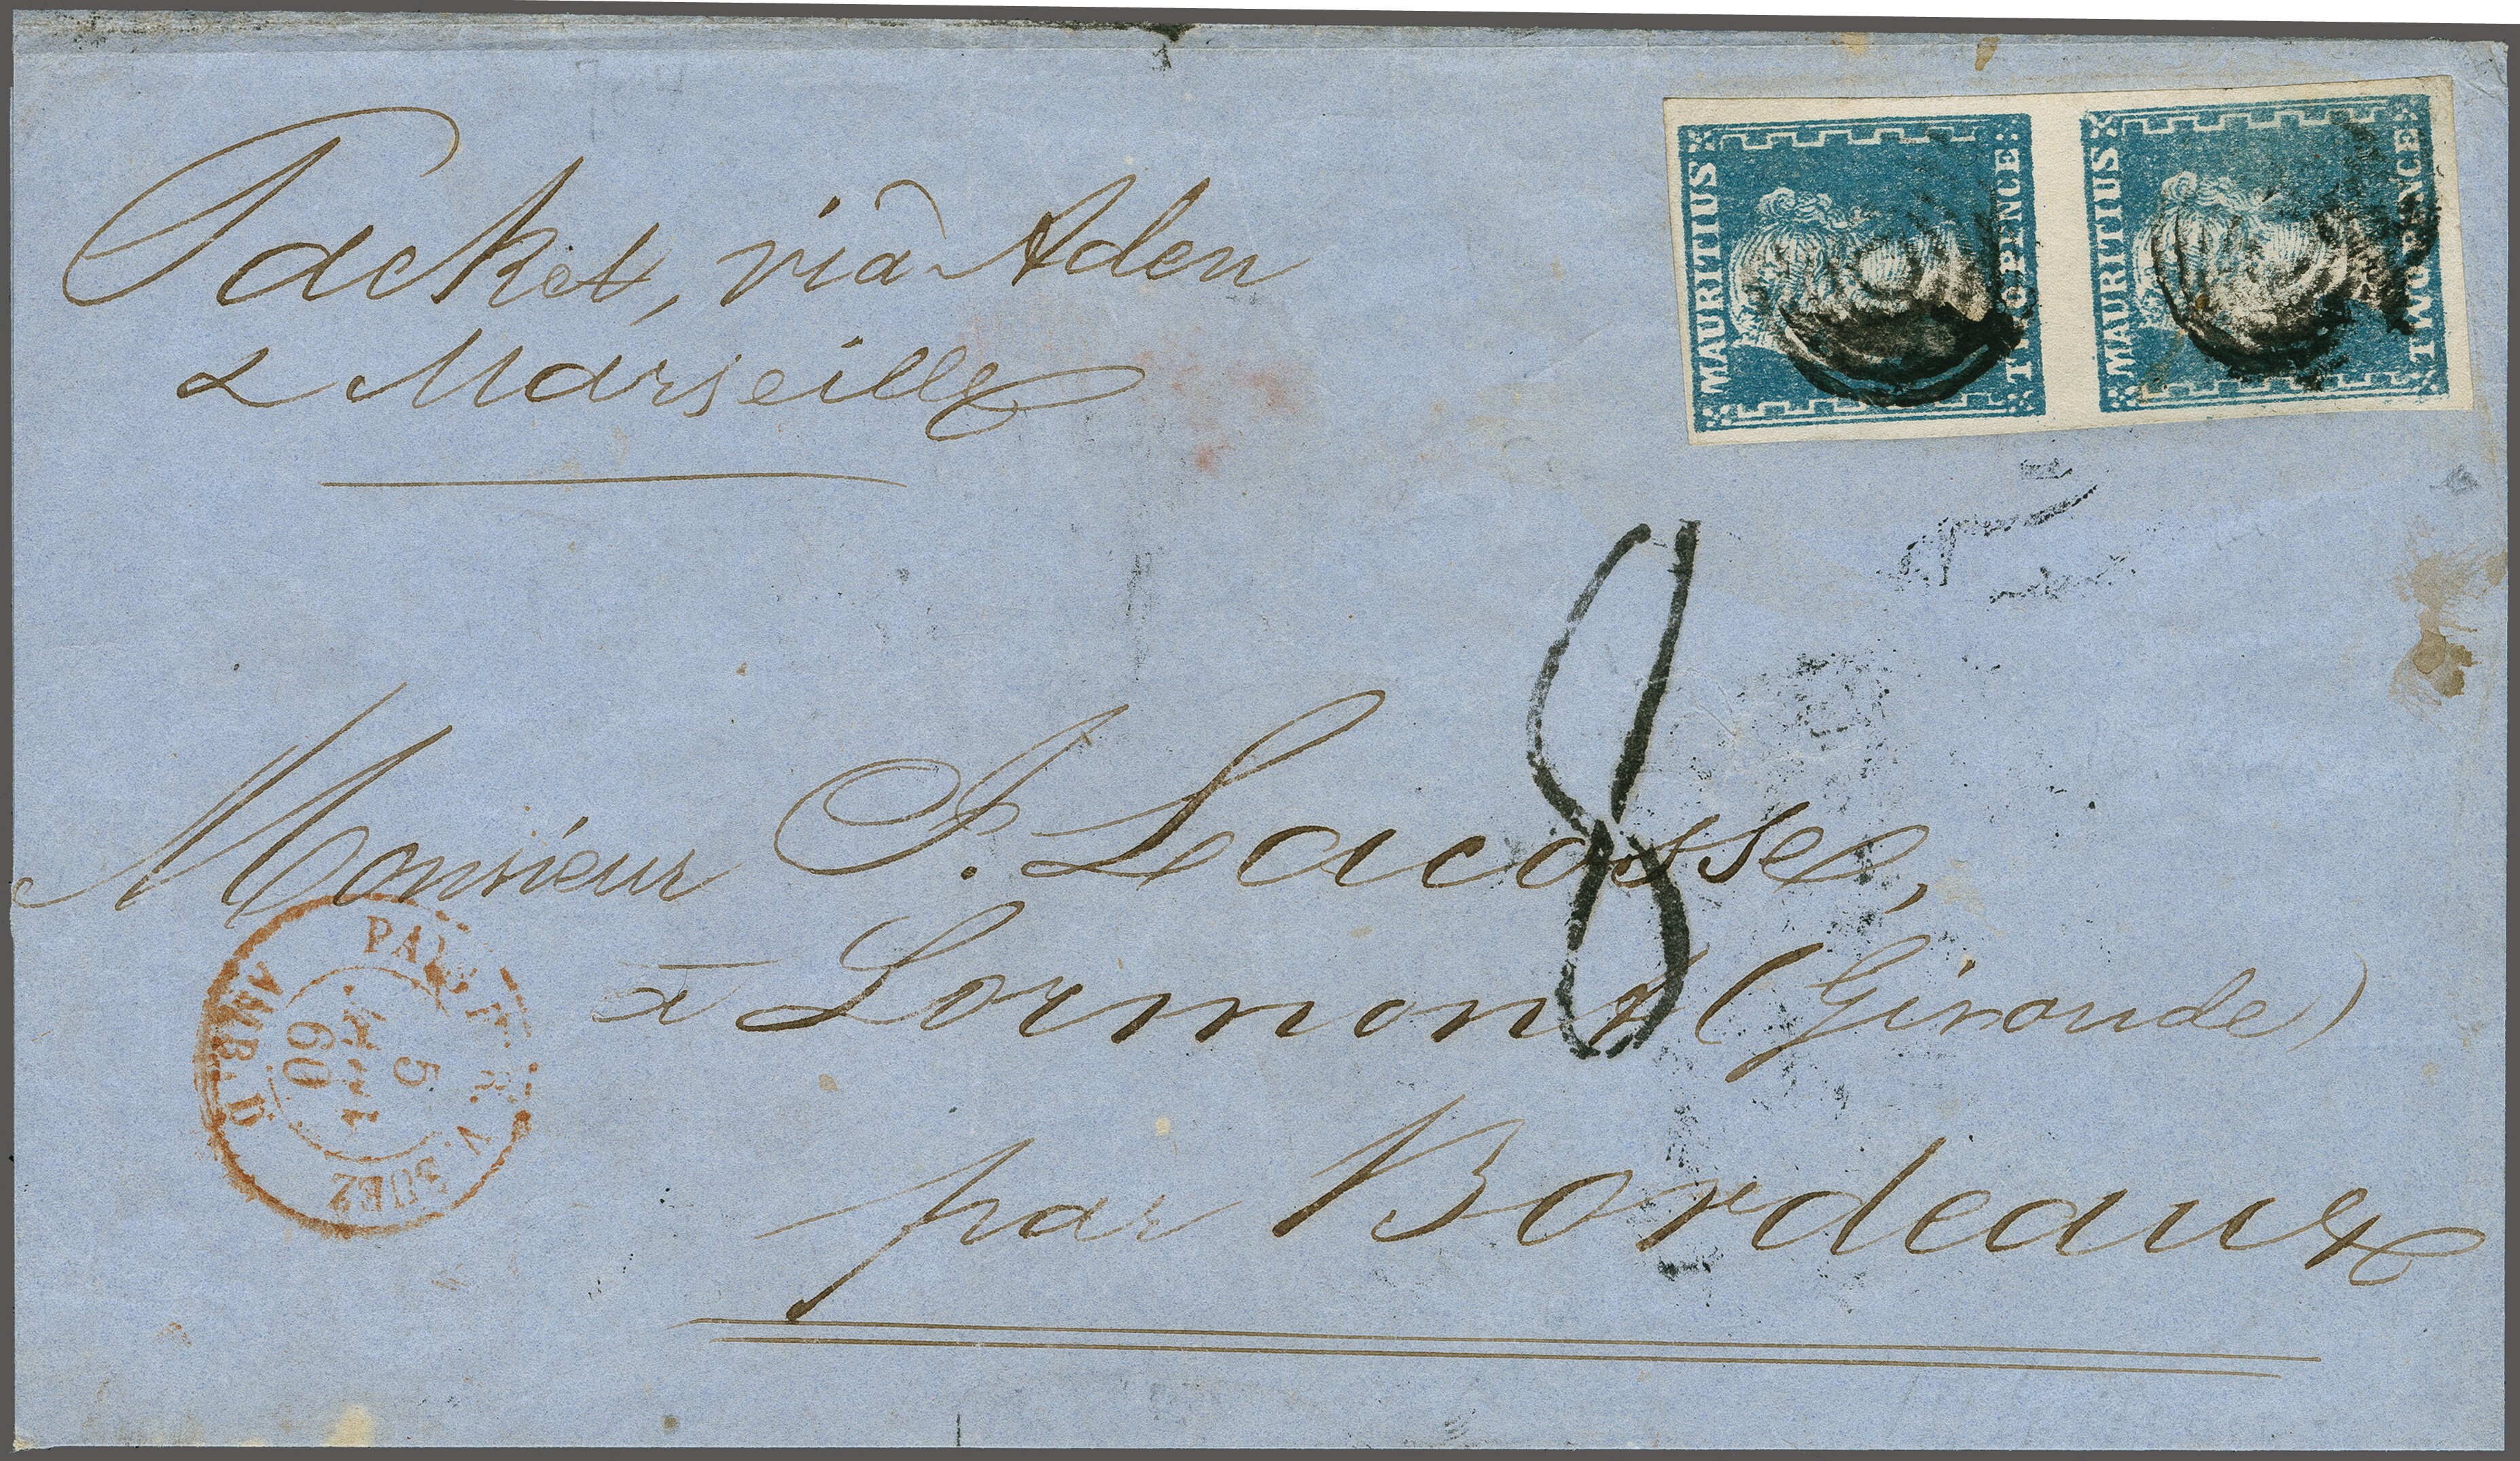 Packet, viâ Aden
& Marseille
MAURITIUS
TWO PENCE
MAURITIUS
TWO PENCE
8
Monsieur J. Lacosse,
à Lormont (Gironde)
par Bordeaux
V. SUEZ
AMB. D
5
60